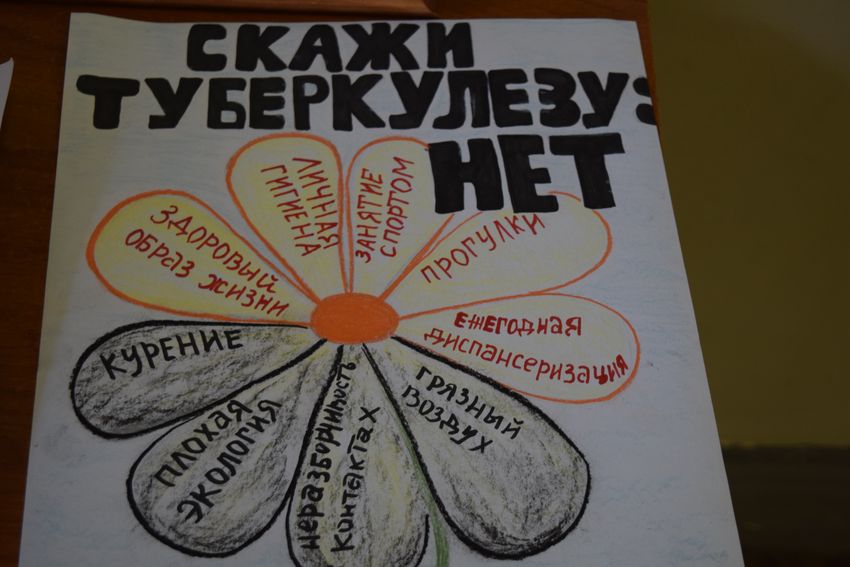 СКАЖИ
ТУБЕРКУЛЕЗУ:
НЕТ
ЗДОРОВЫЙ
ОБРАЗ ЖИЗНИ
ЛИЧНАЯ
ГИГИЕНА
ЗАНЯТИЕ
СПОРТОМ
ПРОГУЛКИ
ЕЖЕГОДНАЯ
ДИСПАНСЕРИЗАЦИЯ
КУРЕНИЕ
ПЛОХАЯ
ЭКОЛОГИЯ
неразборчивость
контактах
ГРЯЗНЫЙ
ВОЗДУХ